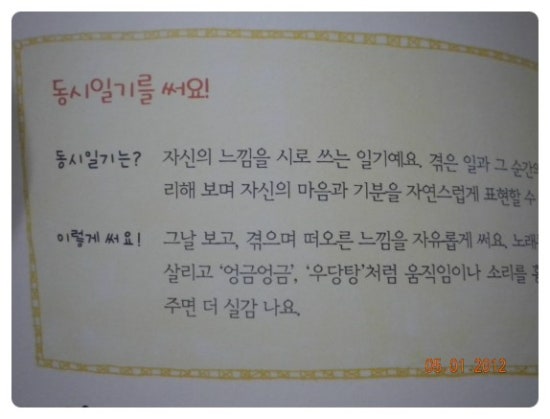 동시일기를 써요!
동시일기는? 자신의 느낌을 시로 쓰는 일기예요. 겪은 일과 그 순간의
리해 보며 자신의 마음과 기분을 자연스럽게 표현할 수
이렇게 써요! 그날 보고, 겪으며 떠오른 느낌을 자유롭게 써요. 노래
살리고 '엉금엉금', '우당탕'처럼 움직임이나 소리를
주면 더 실감 나요.
05 01 2012